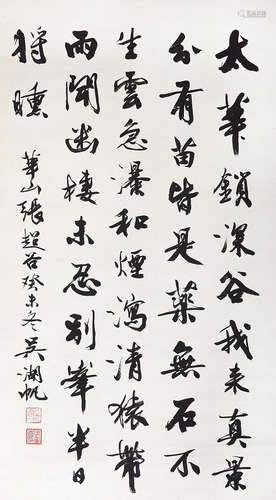 太華鎖深谷我來真景
分有苗皆是藥無石不
生雲急瀑和煙瀉清猿帶
雨聞幽棲未忍別峯半日
將曛
華山張超谷癸未冬吳湖帆